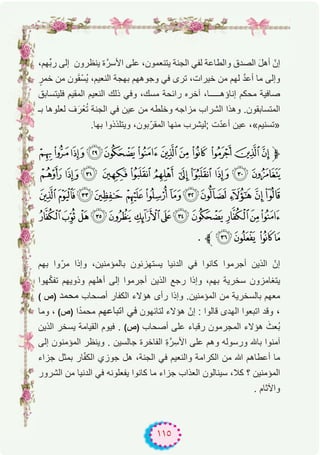 إنّ أهلَ الصدق والطاعة لفي الجنة يتنعمون، على الأسرَّة ينظرون إلى ربِّهم،
وإلى ما أعدَّ لهم من خيرات، ترى في وجوههم بهجة النعيم، يُسْقَون من خمرٍ
صافية محكم إناؤهـــا، آخره رائحة مسك، وفي ذلك النعيم المقيم فليتسابق
المتسابقون. وهذا الشراب مزاجه وخلطه من عين في الجنة تُعْرَف لعلوها بـ
«تسنيم»، عين أعدّت ;ليشرب منها المقرّبون، ويتلذذوا بها.
﴿ إِنَّ ٱلَّذِينَ أَجْرَمُوا۟ كَانُوا۟ مِنَ ٱلَّذِينَ ءَامَنُوا۟ يَضْحَكُونَ ٢٩ وَإِذَا مَرُّوا۟ بِهِمْ
يَتَغَامَزُونَ ٣٠ وَإِذَا ٱنقَلَبُوٓا۟ إِلَىٰٓ أَهْلِهِمُ ٱنقَلَبُوا۟ فَكِهِينَ ٣١ وَإِذَا رَأَوْهُمْ
قَالُوٓا۟ إِنَّ هَـٰٓؤُلَآءِ لَضَآلُّونَ ٣٢ وَمَآ أُرْسِلُوا۟ عَلَيْهِمْ حَـٰفِظِينَ ٣٣ فَٱلْيَوْمَ ٱلَّذِينَ
ءَامَنُوا۟ مِنَ ٱلْكُفَّارِ يَضْحَكُونَ ٣٤ عَلَى ٱلْأَرَآئِكِ يَنظُرُونَ ٣٥ هَلْ ثُوِّبَ ٱلْكُفَّارُ
مَا كَانُوا۟ يَفْعَلُونَ ٣٦ ﴾ .
إنَّ الذين أجرموا كانوا في الدنيا يستهزئون بالمؤمنين، وإذا مرّوا بهم
يتغامزون سخرية بهم، وإذا رجع الذين أجرموا إلى أهلهم وذويهم تفكّهوا
معهم بالسخرية من المؤمنين. وإذا رأى هؤلاء الكفار أصحاب محمد (ص )
، وقد اتبعوا الهدى قالوا : إنَّ هؤلاء لتائهون في اتباعهم محمدًا (ص) ، وما
بُعثَ هؤلاء المجرمون رقباء على أصحاب (ص) . فيوم القيامة يسخر الذين
آمنوا بالله ورسوله وهم على الأسرَّة الفاخرة جالسين . وينظر المؤمنون إلى
ما أعطاهم الله من الكرامة والنعيم في الجنة، هل جوزي الكفّار بمثل جزاء
المؤمنين ؟ كلا، سينالون العذاب جزاء ما كانوا يفعلونه في الدنيا من الشرور
والآثام .
١١٥